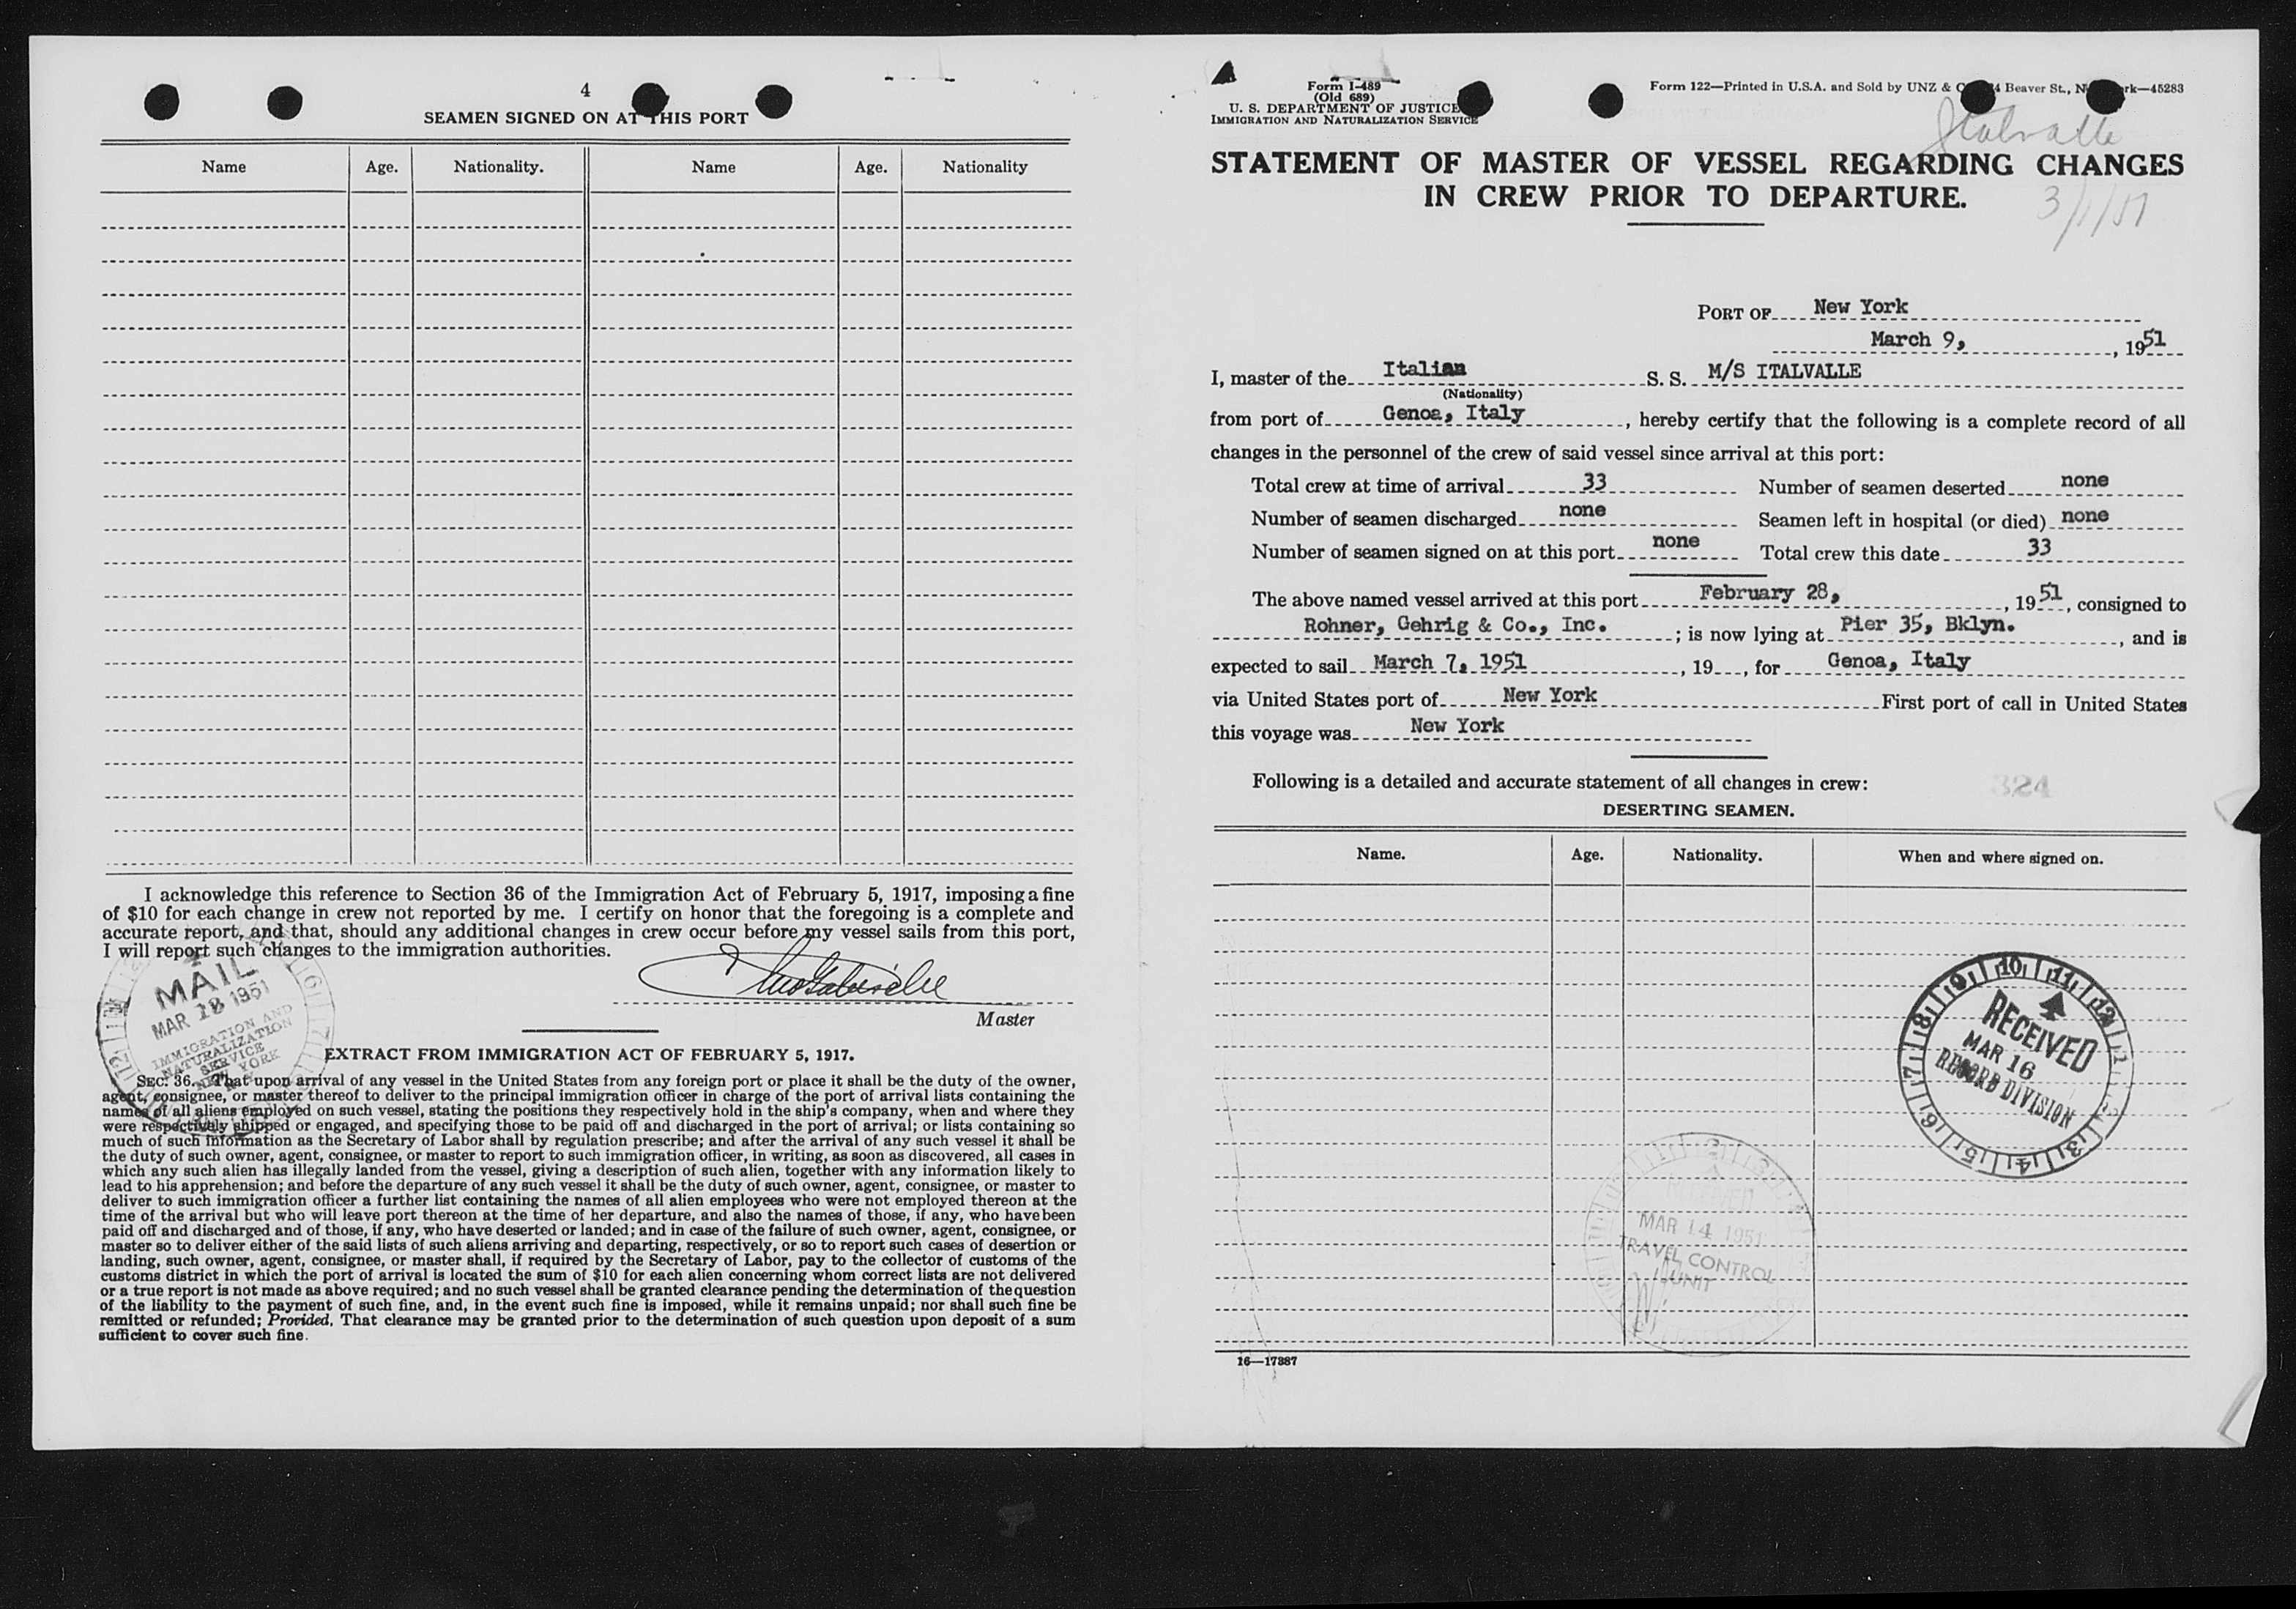 4
SEAMEN SIGNED ON AT THIS PORT
Name Age. Nationality. Name Age. Nationality
I acknowledge this reference to Section 36 of the Immigration Act of February 5, 1917, imposing a fine
of $10 for each change in crew not reported by me. I certify on honor that the foregoing is a complete and
accurate report, and that, should any additional changes in crew occur before my vessel sails from this port,
I will report such changes to the immigration authorities.
Master
MAIL
MAR 1951
IMMIGRATION AND
NATURALIZATION
SERVICE
NEW YORK
EXTRACT FROM IMMIGRATION ACT OF FEBRUARY 5, 1917.
SEC. 36. That upon arrival of any vessel in the United States from any foreign port or place it shall be the duty of the owner,
agent, consignee, or master thereof to deliver to the principal immigration officer in charge of the port of arrival lists containing the
names of all aliens employed on such vessel, stating the positions they respectively hold in the ship's company, when and where they
were respectively shipped or engaged, and specifying those to be paid off and discharged in the port of arrival; or lists containing so
much of such information as the Secretary of Labor shall by regulation prescribe; and after the arrival of any such vessel it shall be
the duty of such owner, agent, consignee, or master to report to such immigration officer, in writing, as soon as discovered, all cases in
which any such alien has illegally landed from the vessel, giving a description of such alien, together with any information likely to
lead to his apprehension; and before the departure of any such vessel it shall be the duty of such owner, agent, consignee, or master to
deliver to such immigration officer a further list containing the names of all alien employees who were not employed thereon at the
time of the arrival but who will leave port thereon at the time of her departure, and also the names of those, if any, who have been
paid off and discharged and of those, if any, who have deserted or landed; and in case of the failure of such owner, agent, consignee, or
master so to deliver either of the said lists of such aliens arriving and departing, respectively, or so to report such cases of desertion or
landing, such owner, agent, consignee, or master shall, if required by the Secretary of Labor, pay to the collector of customs of the
customs district in which the port of arrival is located the sum of $10 for each alien concerning whom correct lists are not delivered
or a true report is not made as above required; and no such vessel shall be granted clearance pending the determination of the question
of the liability to the payment of such fine, and, in the event such fine is imposed, while it remains unpaid; nor shall such fine be
remitted or refunded; Provided, That clearance may be granted prior to the determination of such question upon deposit of a sum
sufficient to cover such fine.
Form I-489
(Old 689)
U. S. DEPARTMENT OF JUSTICE
IMMIGRATION AND NATURALIZATION SERVICE
Form 122—Printed in U.S.A. and Sold by UNZ & Beaver St., —45283
Italvalle
STATEMENT OF MASTER OF VESSEL REGARDING CHANGES
IN CREW PRIOR TO DEPARTURE.
3/1/51
PORT OF New York
March 9, , 1951
I, master of the Italian S. S. M/S ITALVALLE
(Nationality)
from port of Genoa, Italy , hereby certify that the following is a complete record of all
changes in the personnel of the crew of said vessel since arrival at this port:
Total crew at time of arrival 33 Number of seamen deserted none
Number of seamen discharged none Seamen left in hospital (or died) none
Number of seamen signed on at this port none Total crew this date 33
The above named vessel arrived at this port February 28, , 1951, consigned to
Rohner, Gehrig & Co., Inc. ; is now lying at Pier 35, Bklyn. , and is
expected to sail March 7, 1951 , 19 , for Genoa, Italy
via United States port of New York First port of call in United States
this voyage was New York
Following is a detailed and accurate statement of all changes in crew:
324
DESERTING SEAMEN.
Name. Age. Nationality. When and where signed on.
RECEIVED
MAR 16
RECORD DIVISION
RECEIVED
MAR 14 1951
TRAVEL CONTROL
UNIT
16—17887